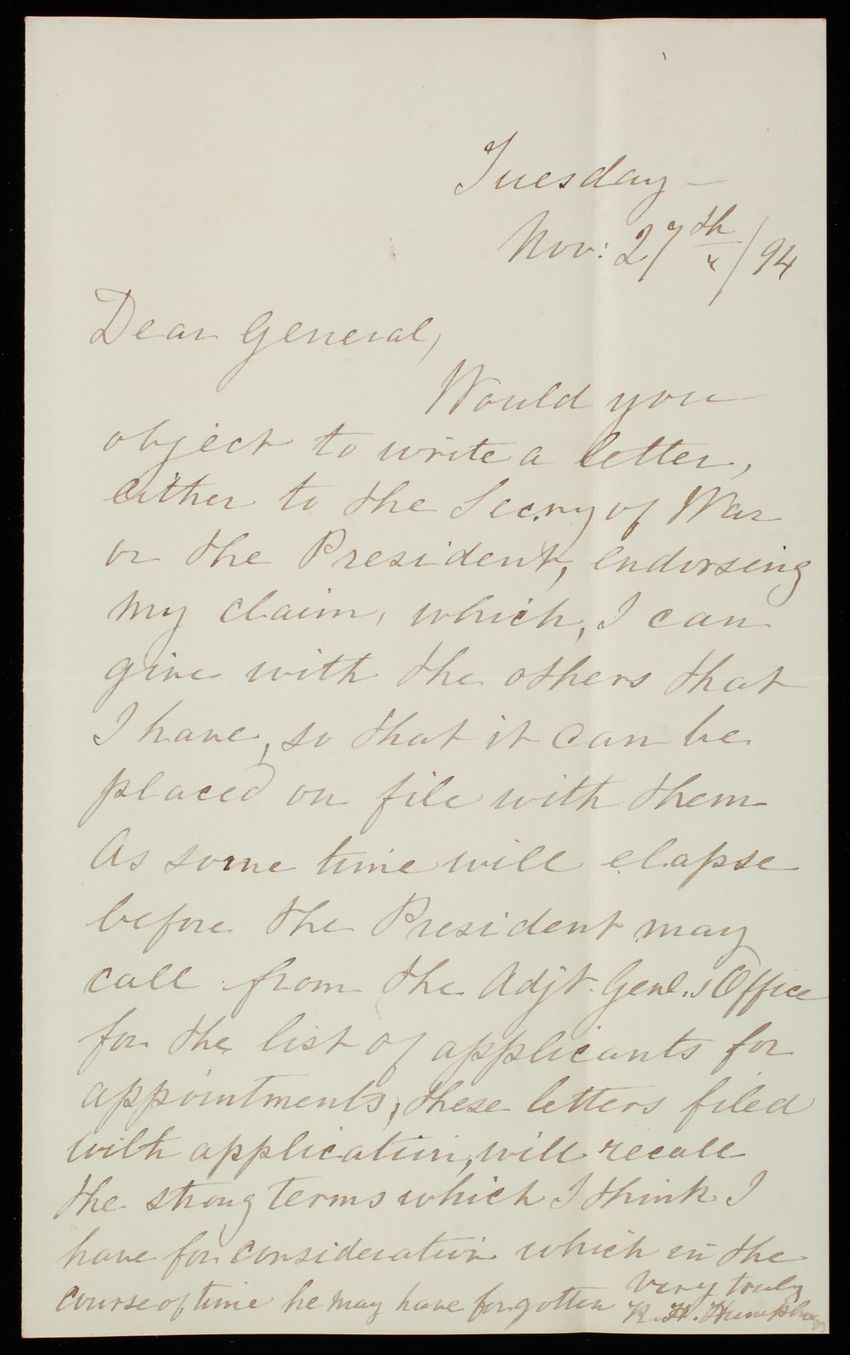 Tuesday —
Nov: 27th / 94
Dear General,
Would you
object to write a letter,
either to the Secry of War
or the President, endorsing
my claim, which, I can
give with the others that
I have, so that it can be
placed on file with them
As some time will elapse
before the President may
call from the Adjt. Genl.s Office
for the list of applicants for
appointments, these letters filed
with application, will recall
the strong terms which I think I
have for consideration which in the
course of time he may have forgotten
Very truly
H. Humphrey